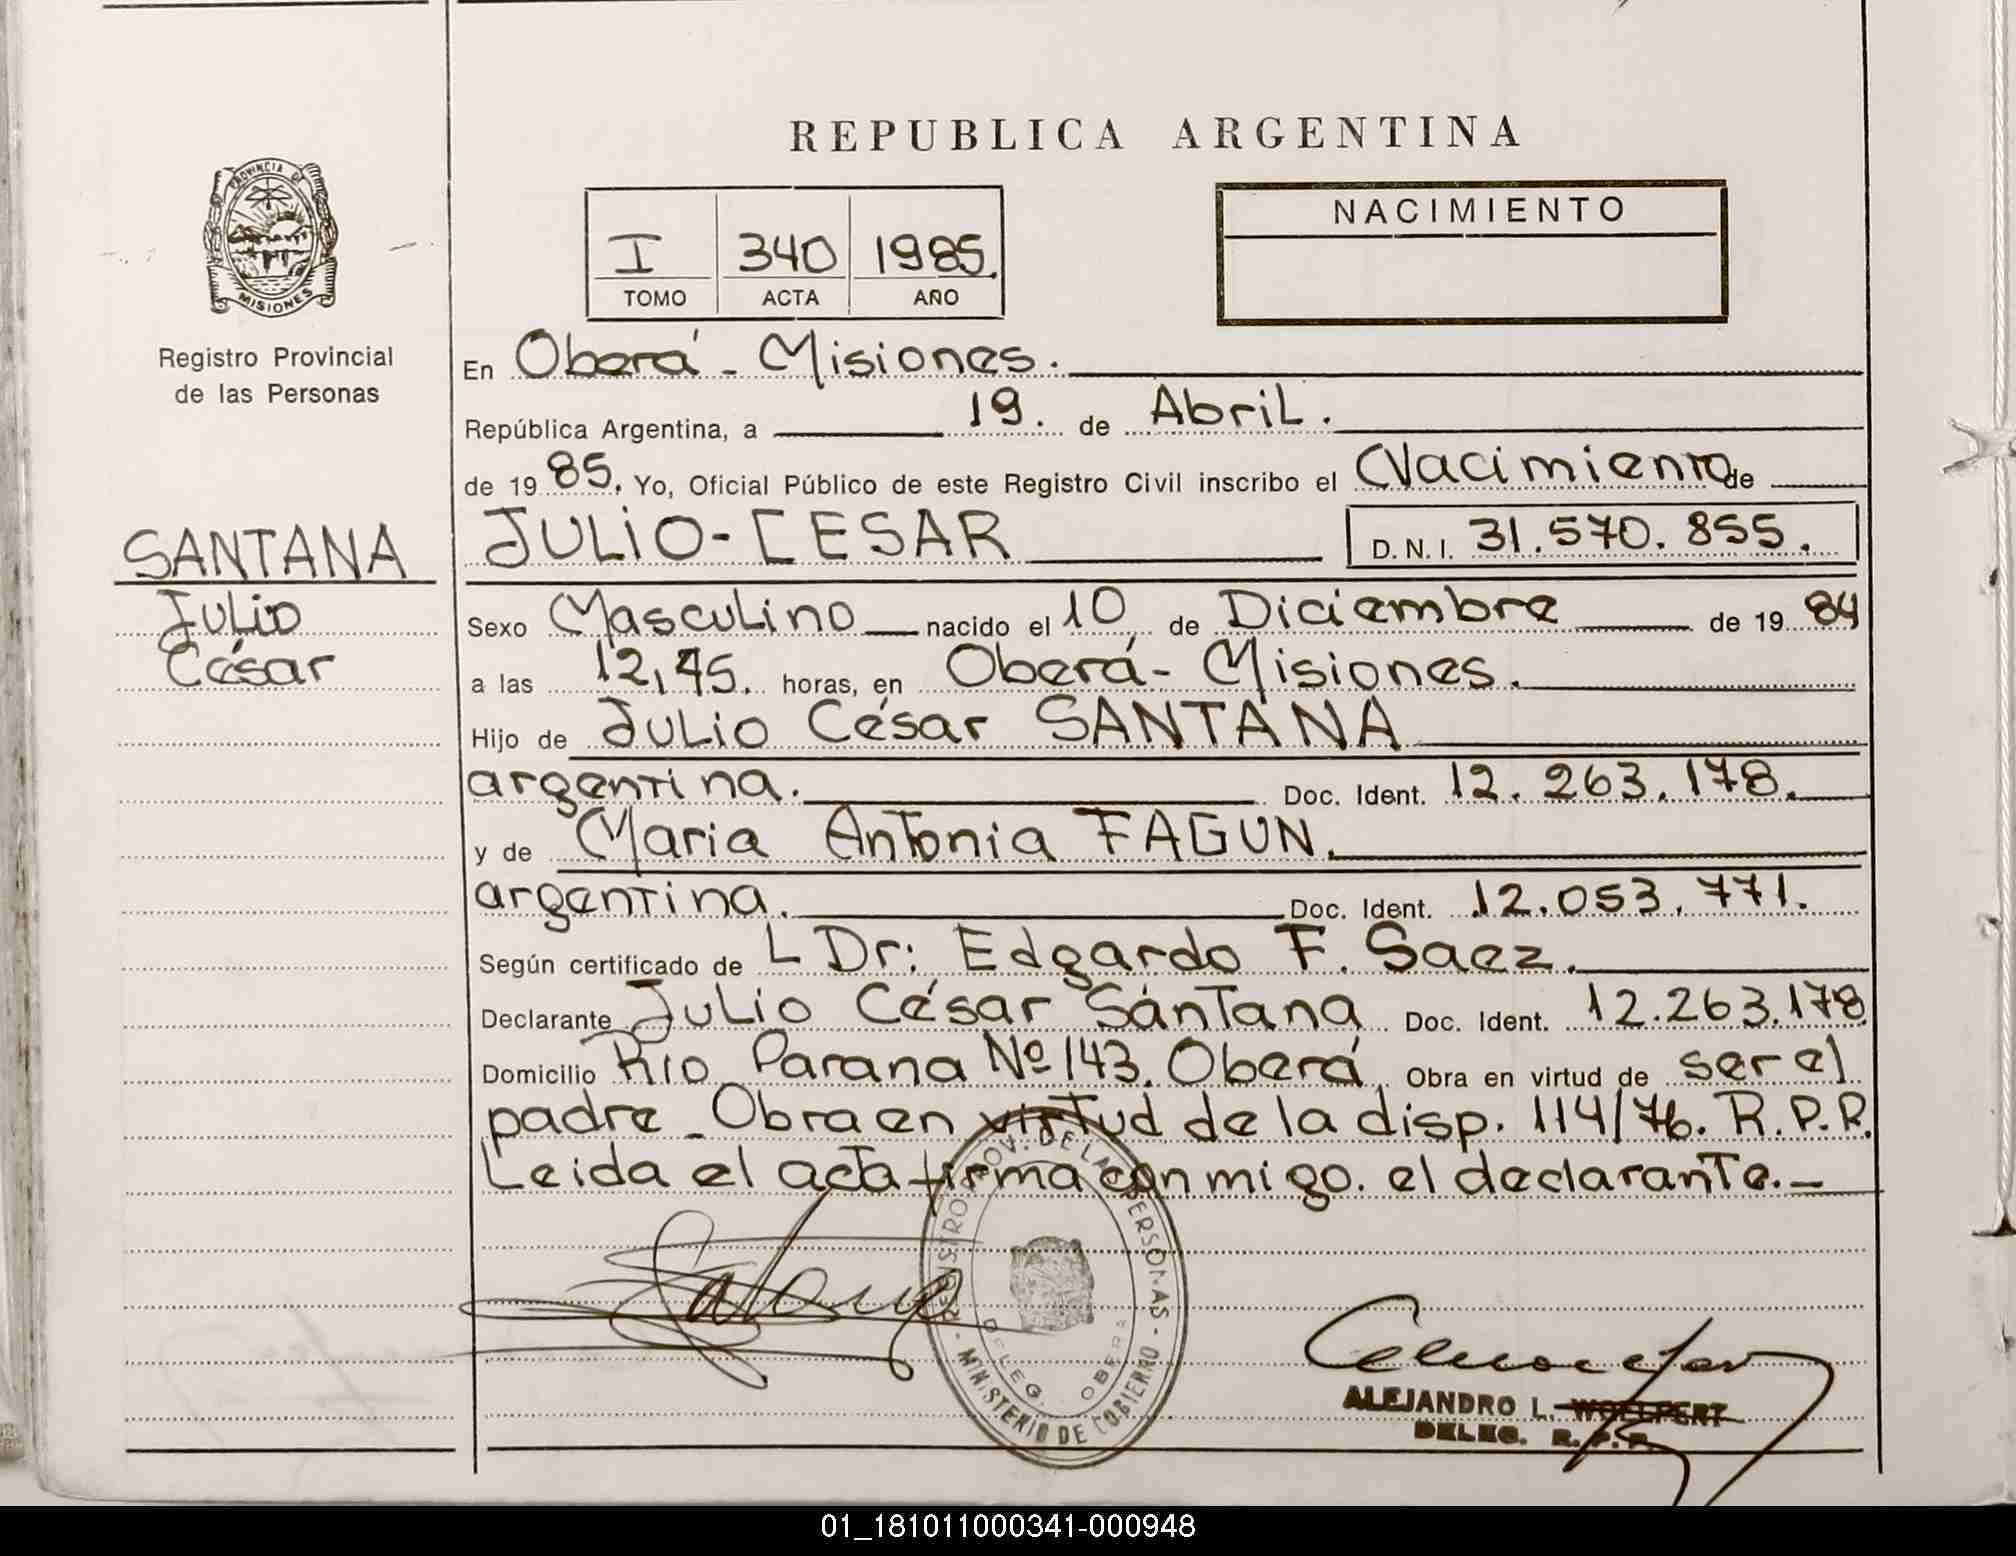 REPUBLICA ARGENTINA
PROVINCIA DE
MISIONES
Registro Provincial
de las Personas
I 340 1985.
TOMO ACTA AÑO
NACIMIENTO
En Oberá - Misiones.
República Argentina, a 19. de Abril.
de 1985. Yo, Oficial Público de este Registro Civil inscribo el Nacimiento de
SANTANA
Julio
César
JULIO-CESAR D.N.I. 31.570.855.
Sexo Masculino nacido el 10, de Diciembre de 1984
a las 12,45. horas, en Oberá - Misiones.
Hijo de Julio César SANTANA
argentina. Doc. Ident. 12.263.178.
y de Maria Antonia FAGUN.
argentina. Doc. Ident. 12.053.771.
Según certificado de L Dr: Edgardo F. Saez.
Declarante Julio César Santana Doc. Ident. 12.263.178
Domicilio Rio Parana Nº 143. Oberá, Obra en virtud de ser el
padre - Obra en virtud de la disp. 114/76. R.P.R.
Leida el acta firma conmigo. el declarante.-
REGISTRO PROV. DE LAS PERSONAS - MINISTERIO DE GOBIERNO -
DELEG. OBERA
ALEJANDRO L. WOLLPERT
DELEG. R.P.P.
01_181011000341-000948